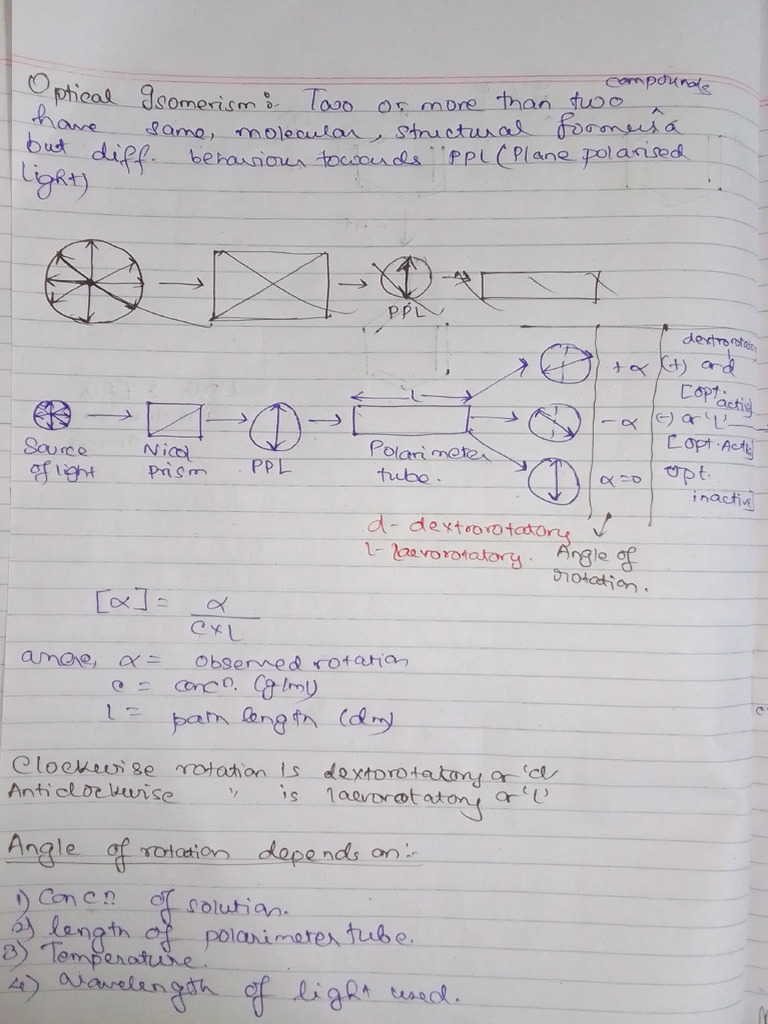 Optical Isomerism:- Two or more than two compounds
have same, molecular, structural formula
but diff. behaviour towards PPL (Plane polarised
light)
PPL
dextrorotatory
+α (+) and
[opt. active]
L
-α (-) or 'l'
[opt. Active]
Source of light
Nicol prism
PPL
Polarimeter tube.
α=0
opt. inactive]
d- dextrorotatory
l- laevorotatory.
Angle of rotation.
[α] = α / C×L
where, α = observed rotation
c = concn. (g/ml)
l = path length (dm)
Clockwise rotation is dextorotatory or 'd'
Anticlockwise " is laevorotatory or 'l'
Angle of rotation depends on:-
1) Concn of solution.
2) length of polarimeter tube.
3) Temperature.
4) Wavelength of light used.